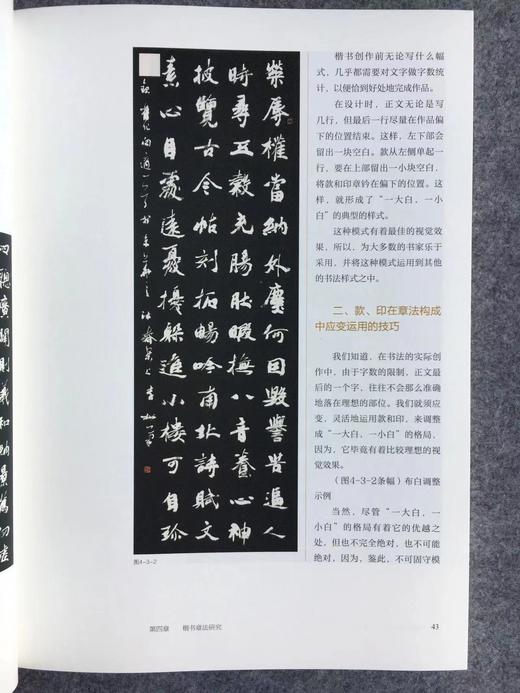 榮辱權當納外塵何因毀譽苦逼人
時尋五穀充腸肚暇撫八音養心神
披覽古今帖刻拓暢吟南北詩賦文
素心自處遠憂擾躲進小樓可自珍
图4-3-2
楷书创作前无论写什么幅
式，几乎都需要对文字做字数统
计，以便恰到好处地完成作品。
在设计时，正文无论是写
几行，但最后一行尽量在作品偏
下的位置结束。这样，左下部会
留出一块空白。款从左侧单起一
行，要在上部留出一小块空白，
将款和印章钤在偏下的位置。这
样，就形成了“一大白，一小
白”的典型的样式。
这种模式有着最佳的视觉效
果，所以，为大多数的书家乐于
采用，并将这种模式运用到其他
的书法样式之中。
二、款、印在章法构成
中应变运用的技巧
我们知道，在书法的实际创
作中，由于字数的限制，正文最
后的一个字，往往不会那么准确
地落在理想的部位。我们就须应
变，灵活地运用款和印，来调整
成“一大白，一小白”的格局，
因为，它毕竟有着比较理想的视
觉效果。
（图4-3-2条幅）布白调整
示例
当然，尽管“一大白，一
小白”的格局有着它的优越之
处，但也不完全绝对，也不可能
绝对，因为，鉴此，不可固守模
第四章 楷书章法研究
43